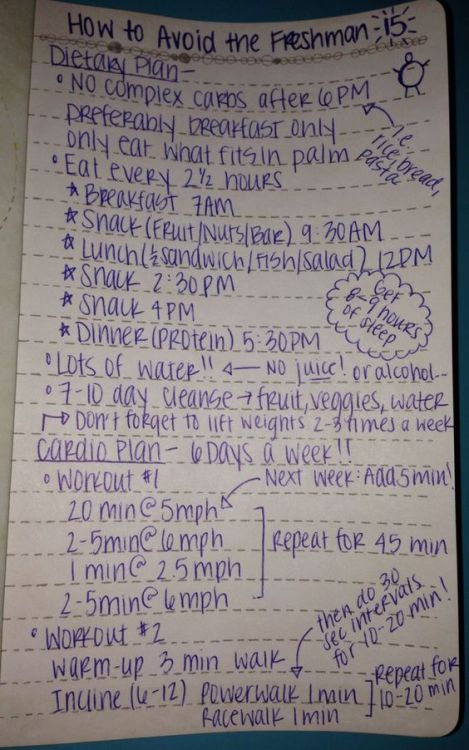 How to Avoid the Freshman 15
Dietary Plan -
• No complex carbs after 6PM
preferably breakfast only
i.e. rice, bread, pasta
only eat what fits in palm
• Eat every 2½ hours
* Breakfast 7AM
* Snack (Fruit/Nuts/Bar) 9:30AM
* Lunch (½ Sandwich/Fish/Salad) 12PM
* Snack 2:30PM
* Snack 4PM
* Dinner (Protein) 5:30PM
Get
8-9 hours
of sleep
• Lots of water!! ← No juice! or alcohol--
• 7-10 day cleanse → fruit, veggies, water
→ Don't forget to lift weights 2-3 times a week
Cardio Plan - 6 Days a week!!
• Workout #1
Next week: Add 5 min!
20 min @ 5mph
2-5min @ 6mph
1 min @ 2.5mph
2-5min @ 6mph
Repeat for 45 min
• Workout #2
warm-up 3 min walk
Incline (6-12) Powerwalk 1min
Racewalk 1min
Repeat for
10-20 min
then do 30
sec intervals
for 10-20 min!